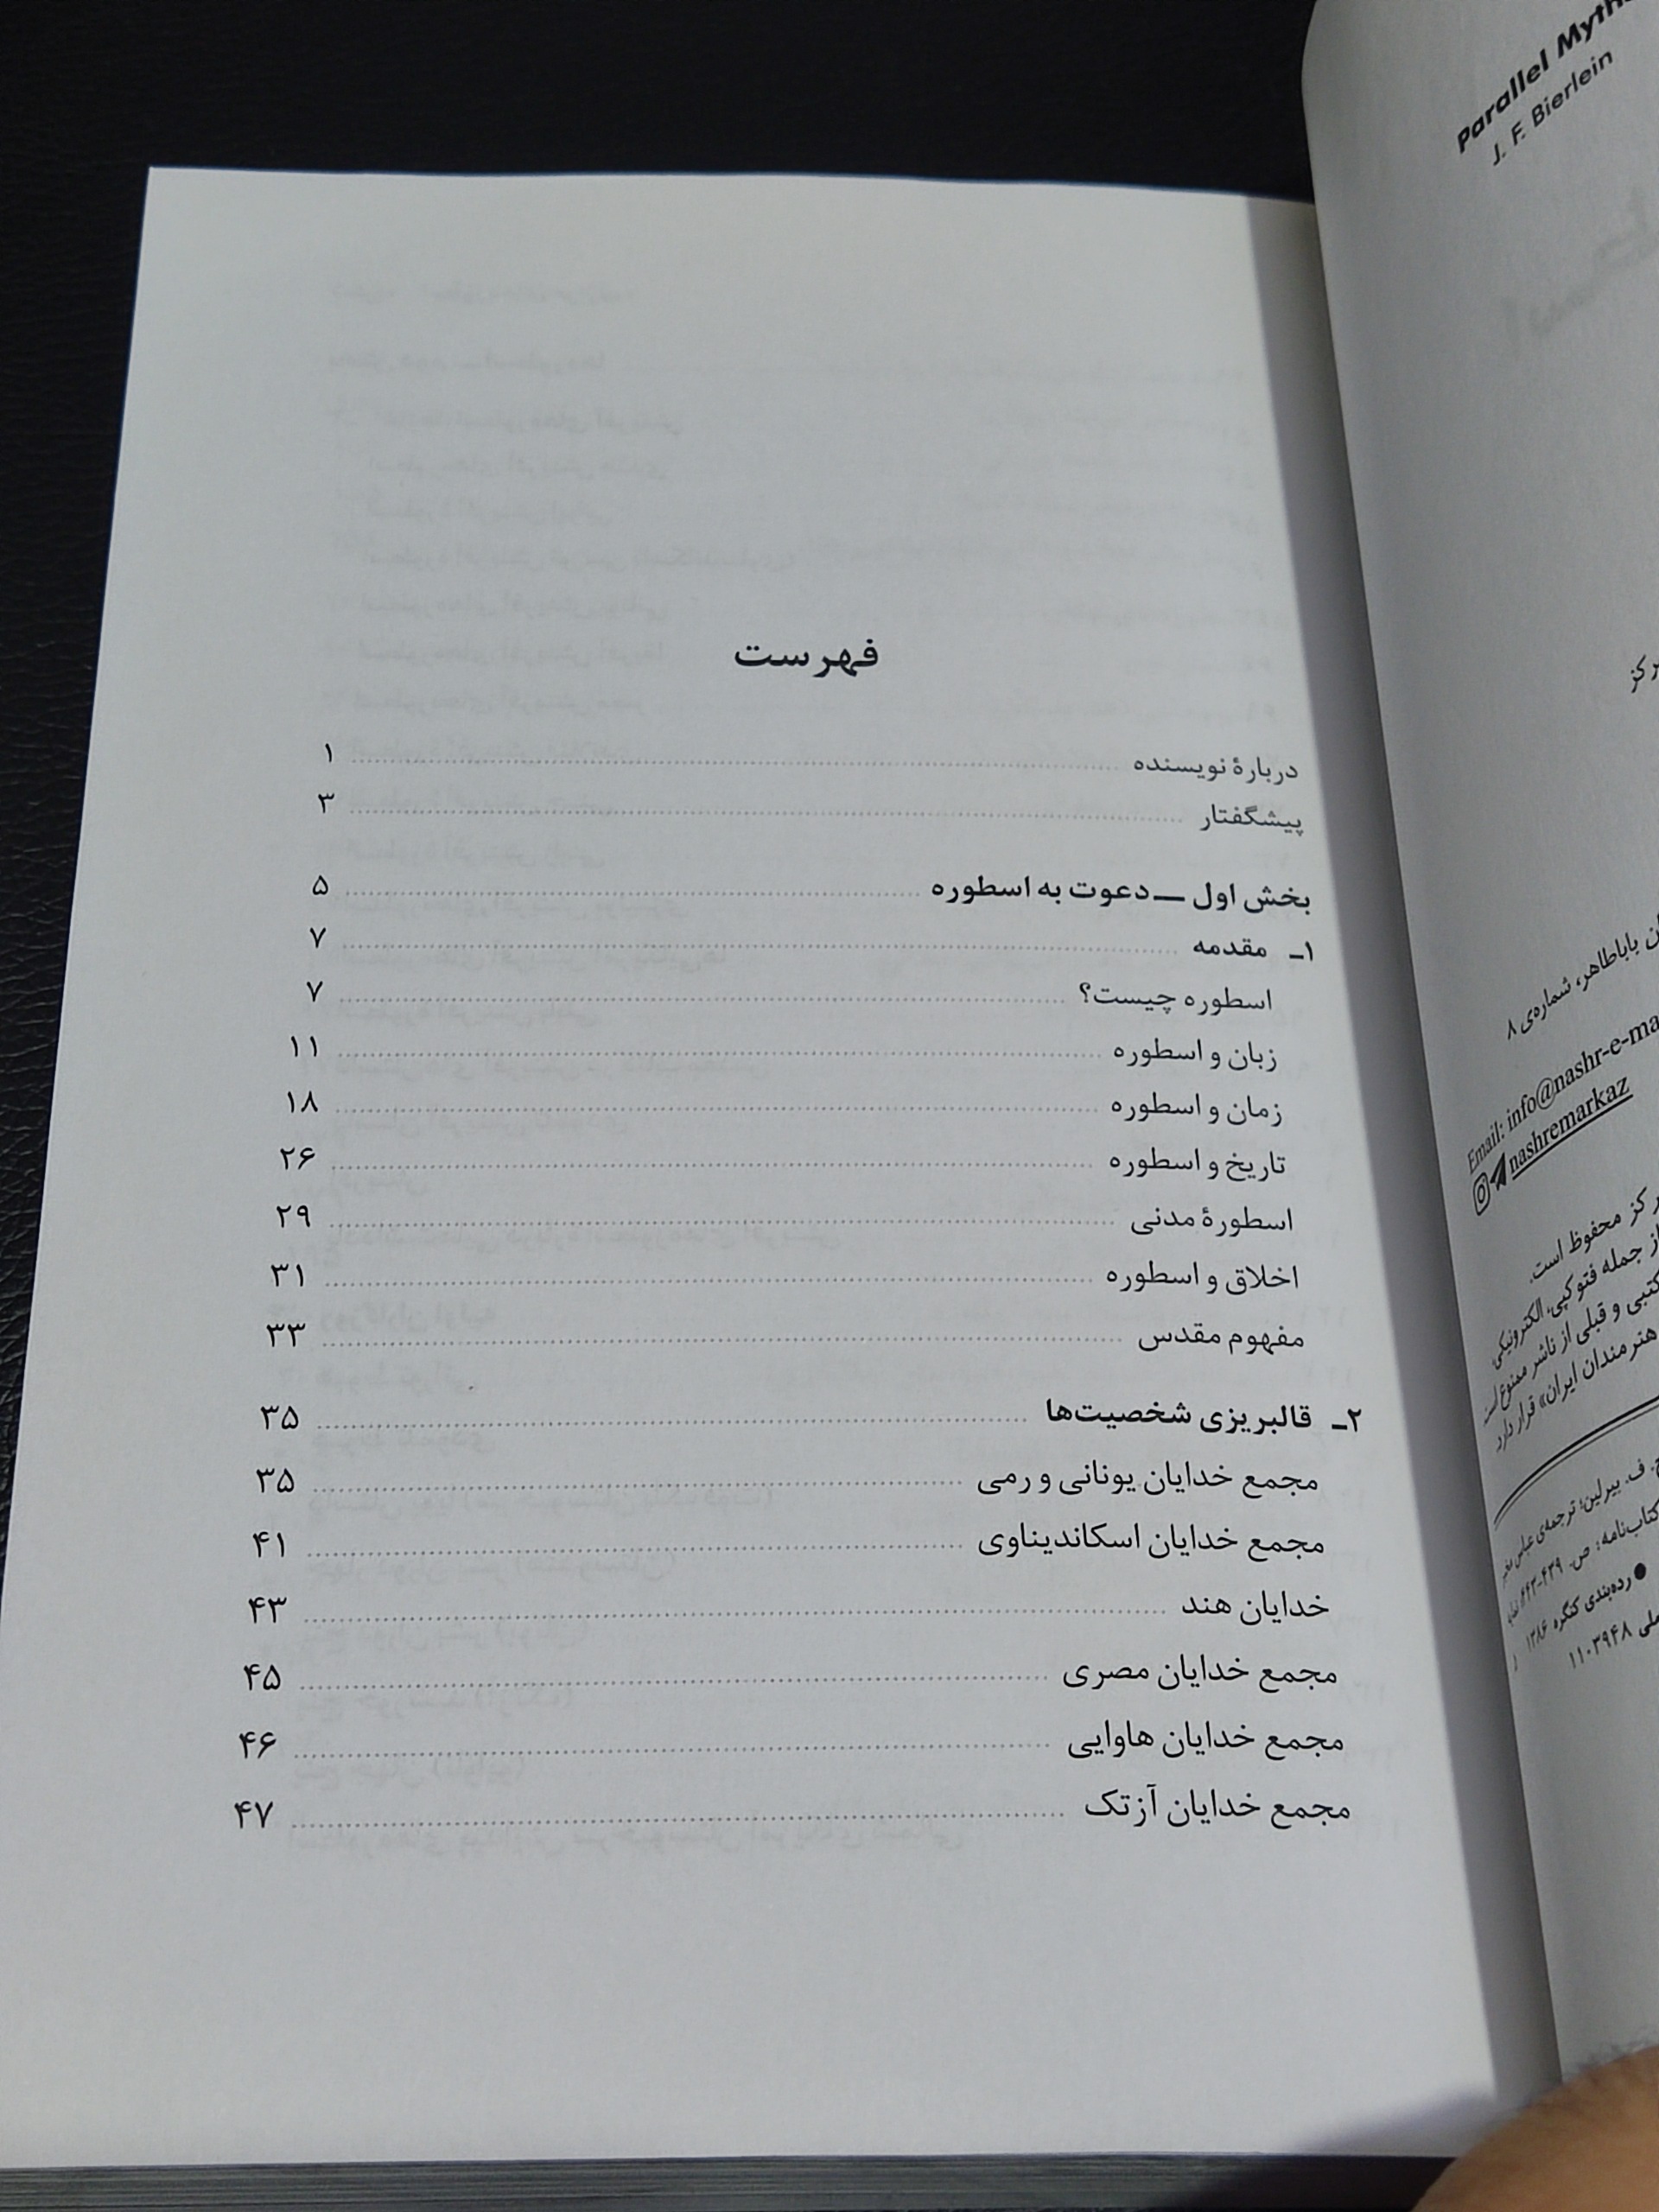 فهرست
دربارهٔ نویسنده ........ ۱
پیشگفتار ........ ۳
بخش اول — دعوت به اسطوره ........ ۵
۱ـ مقدمه ........ ۷
اسطوره چیست؟ ........ ۷
زبان و اسطوره ........ ۱۱
زمان و اسطوره ........ ۱۸
تاریخ و اسطوره ........ ۲۶
اسطورهٔ مدنی ........ ۲۹
اخلاق و اسطوره ........ ۳۱
مفهوم مقدس ........ ۳۳
۲ـ قالبریزی شخصیت‌ها ........ ۳۵
مجمع خدایان یونانی و رمی ........ ۳۵
مجمع خدایان اسکاندیناوی ........ ۴۱
خدایان هند ........ ۴۳
مجمع خدایان مصری ........ ۴۵
مجمع خدایان هاوایی ........ ۴۶
مجمع خدایان آزتک ........ ۴۷
Parallel Myth
J. F. Bierlein
باباطاهر، شماره‌ی ۸
Email: info@nashr-e-ma
nashremarkaz
مرکز محفوظ است.
از جمله فتوکپی، الکترونیکی
کتبی و قبلی از ناشر ممنوع است
هنرمندان ایران» قرار دارد.
ج. ف. بیرلین؛ ترجمه‌ی عباس مخبر
کتاب‌نامه: ص. ۴۳۹-۴۴۳
● رده‌بندی کنگره ۱۳۸۶
۱۱۰۳۹۴۸